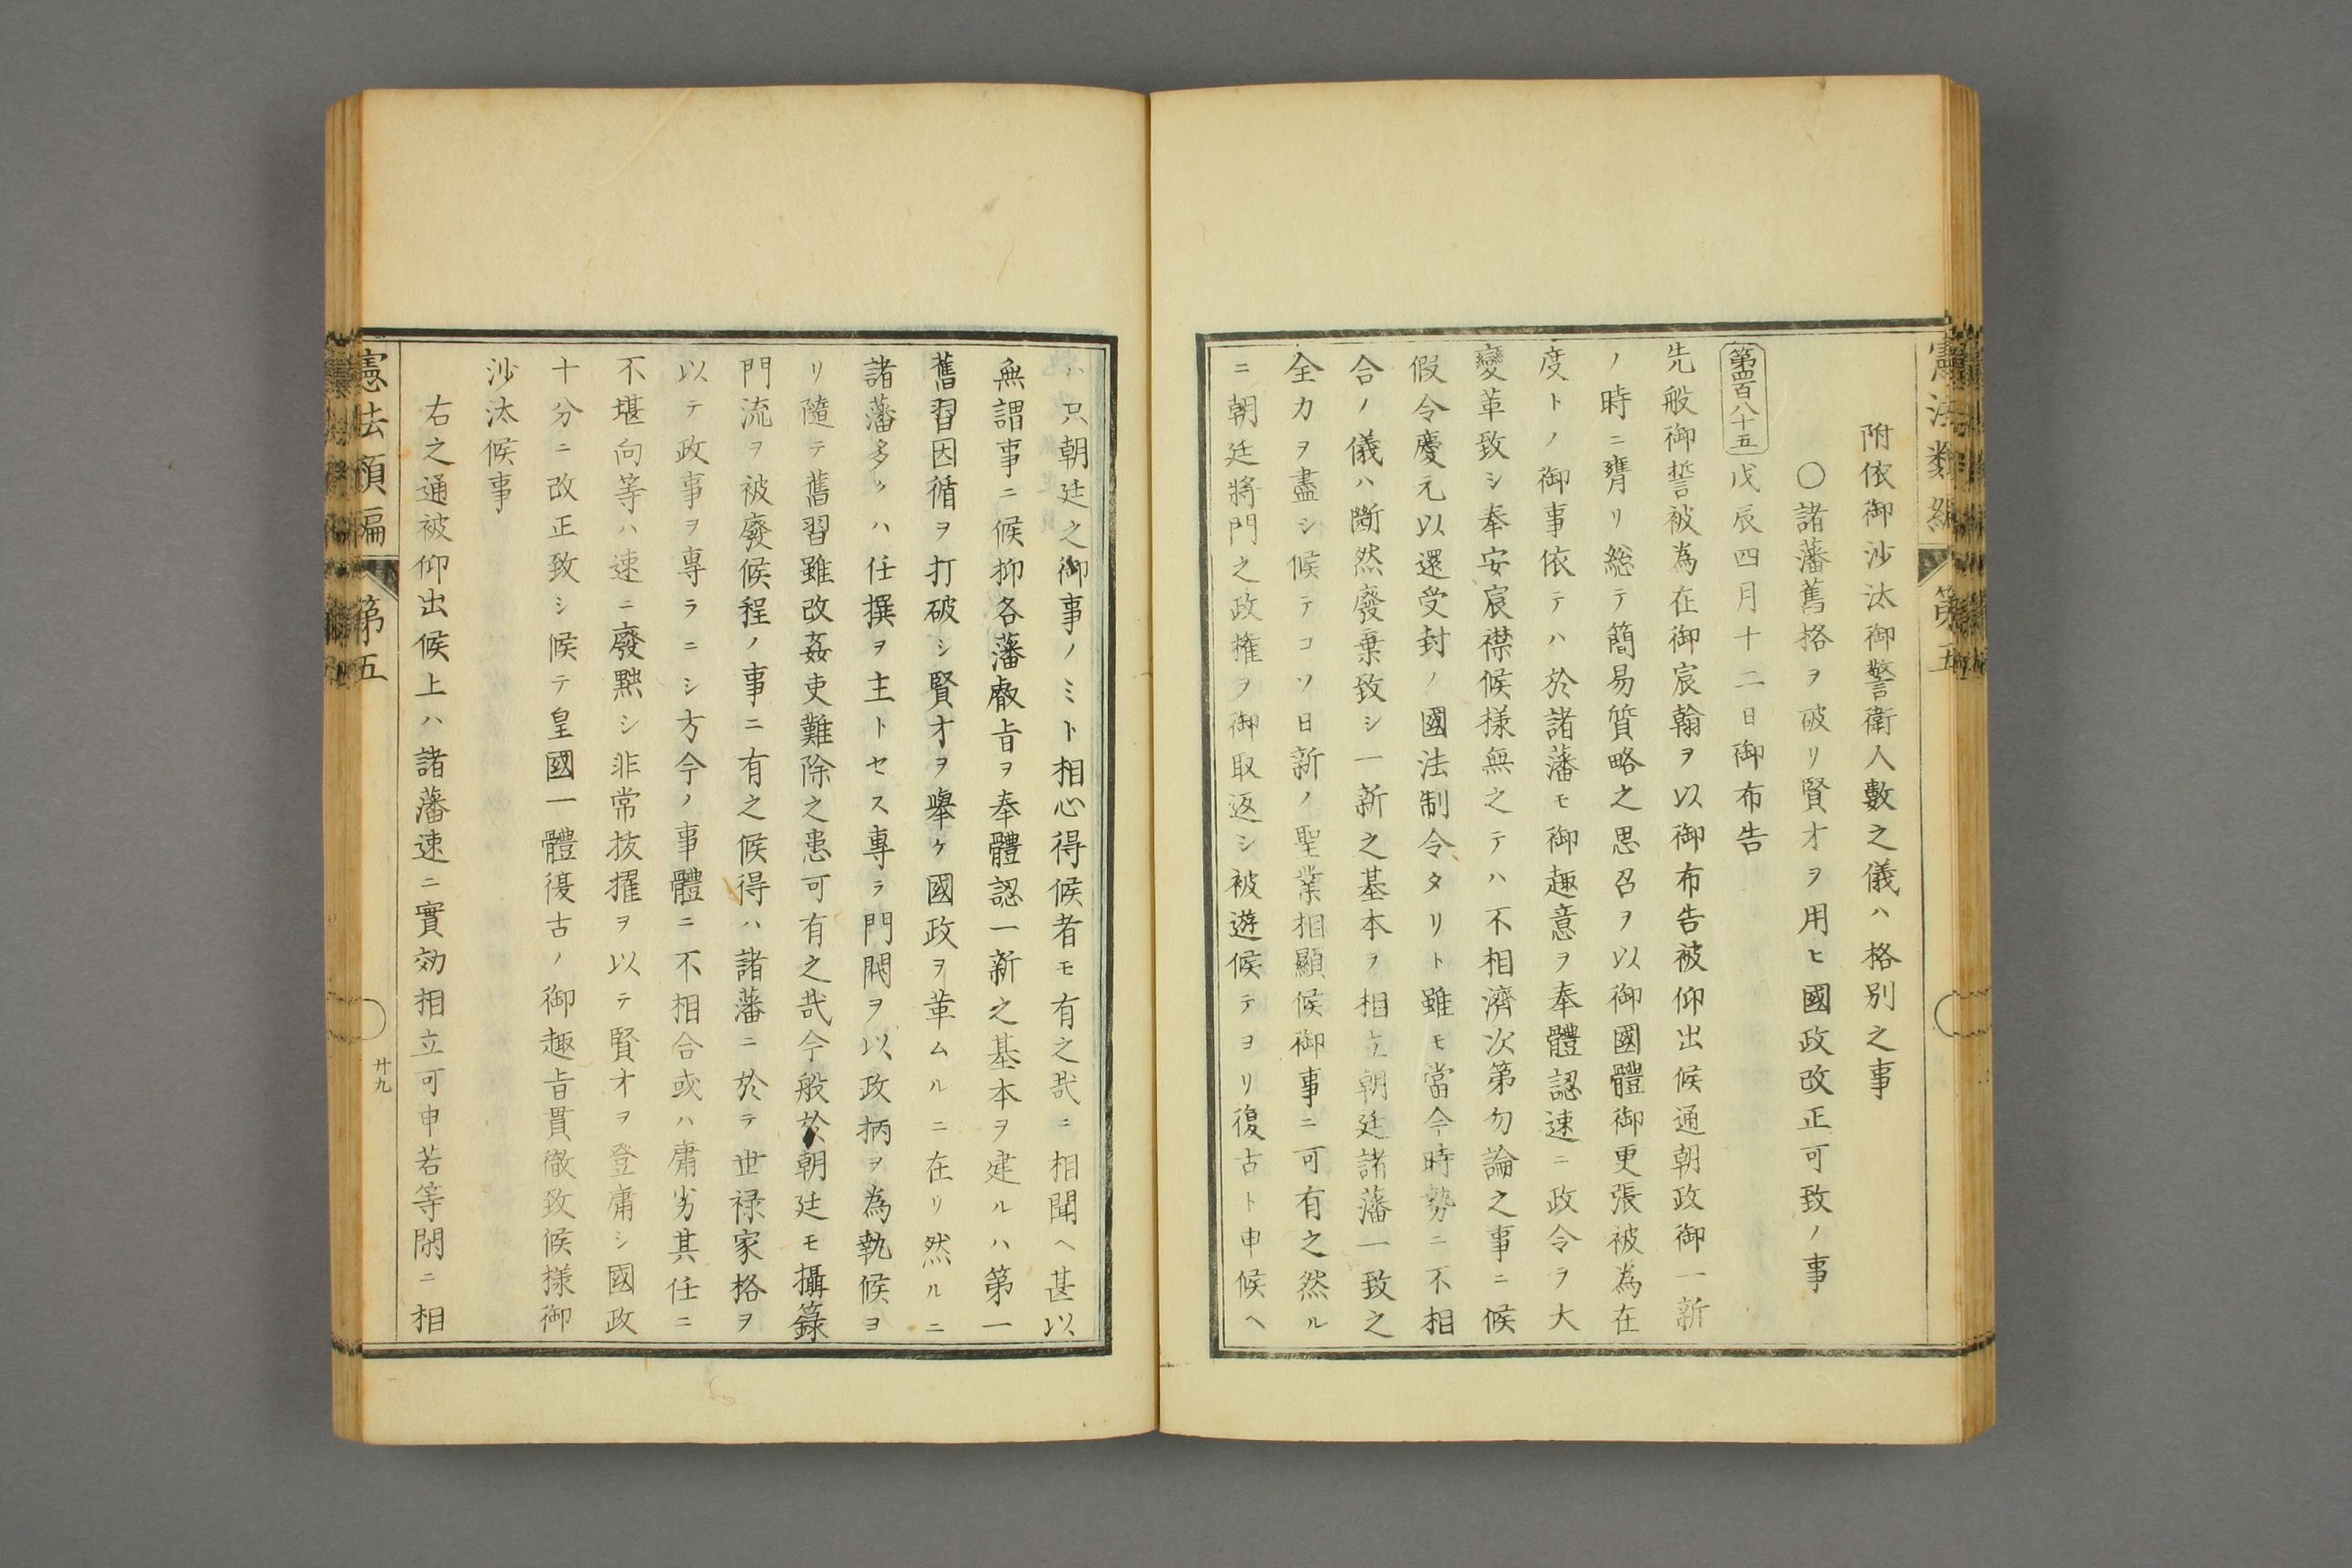 憲法類編 第五
附依御沙汰御警衛人數之儀ハ格別之事
〇諸藩舊格ヲ破リ賢才ヲ用ヒ國政改正可致ノ事
第四百八十五 戊辰四月十二日御布告
先般御誓被為在御宸翰ヲ以御布告被仰出候通朝政御一新
ノ時ニ膺リ総テ簡易質略之思召ヲ以御國體御更張被為在
度トノ御事依テハ於諸藩モ御趣意ヲ奉體認速ニ政令ヲ大
變革致シ奉安宸襟候様無之テハ不相濟次第勿論之事ニ候
假令慶元以還受封ノ國法制令タリト雖モ當今時勢ニ不相
合ノ儀ハ斷然廢棄致シ一新之基本ヲ相立朝廷諸藩一致之
全力ヲ盡シ候テコソ日新ノ聖業相顯候御事ニ可有之然ル
ニ朝廷將門之政權ヲ御取返シ被遊候テヨリ復古ト申候ヘ
ハ只朝廷之御事ノミト相心得候者モ有之哉ニ相聞ヘ甚以
無謂事ニ候抑各藩叡旨ヲ奉體認一新之基本ヲ建ルハ第一
舊習因循ヲ打破シ賢才ヲ擧ケ國政ヲ革ムルニ在リ然ルニ
諸藩多クハ任撰ヲ主トセス專ラ門閥ヲ以政柄ヲ為執候ヨ
リ隨テ舊習雖改姦吏難除之患可有之哉今般於朝廷モ攝籙
門流ヲ被廢候程ノ事ニ有之候得ハ諸藩ニ於テ世禄家格ヲ
以テ政事ヲ專ラニシ方今ノ事體ニ不相合或ハ庸劣其任ニ
不堪向等ハ速ニ廢黙シ非常抜擢ヲ以テ賢才ヲ登庸シ國政
十分ニ改正致シ候テ皇國一體復古ノ御趣旨貫徹致候様御
沙汰候事
右之通被仰出候上ハ諸藩速ニ實効相立可申若等閑ニ相
憲法類編 第五
廿九